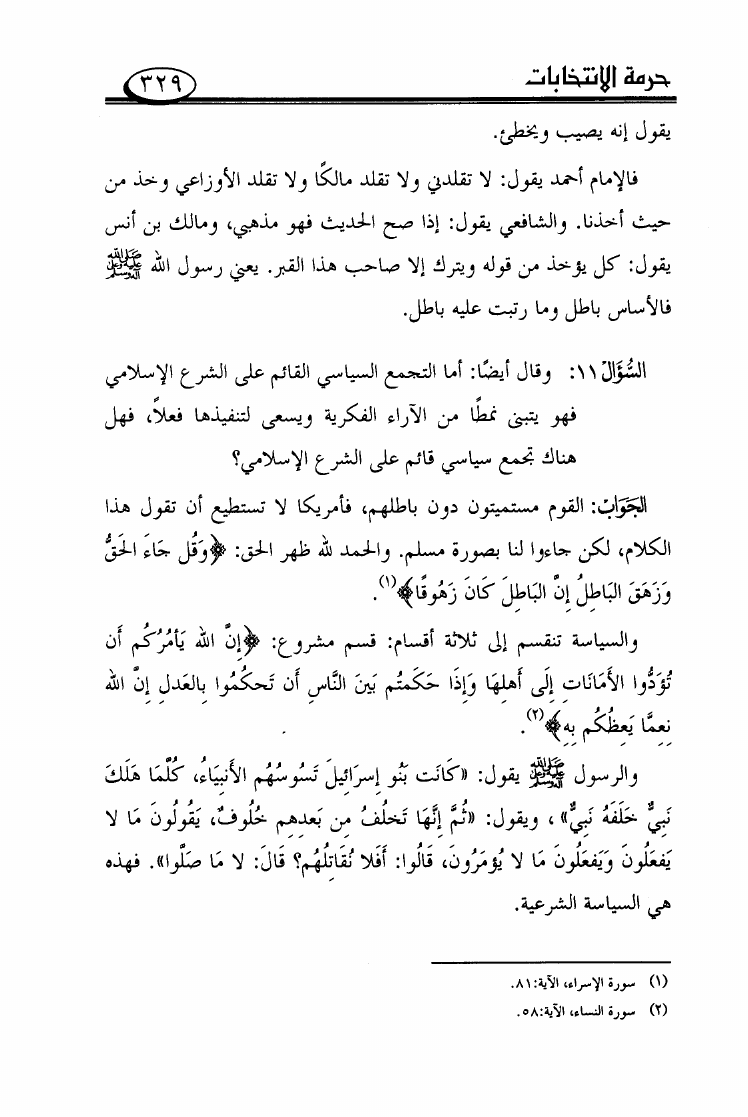 حرمة الانتخابات ٣٢٩
يقول إنه يصيب ويخطئ.
فالإمام أحمد يقول: لا تقلدني ولا تقلد مالكًا ولا تقلد الأوزاعي وخذ من
حيث أخذنا. والشافعي يقول: إذا صح الحديث فهو مذهبي، ومالك بن أنس
يقول: كل يؤخذ من قوله ويترك إلا صاحب هذا القبر. يعني رسول الله ﷺ
فالأساس باطل وما رتبت عليه باطل.
السُّؤَالْ ١١: وقال أيضًا: أما التجمع السياسي القائم على الشرع الإسلامي
فهو يتبنى نمطًا من الآراء الفكرية ويسعى لتنفيذها فعلاً، فهل
هناك تجمع سياسي قائم على الشرع الإسلامي؟
الجَوَابْ: القوم مستميتون دون باطلهم، فأمريكا لا تستطيع أن تقول هذا
الكلام، لكن جاءوا لنا بصورة مسلم. والحمد لله ظهر الحق: ﴿وَقُل جَاءَ الحَقُّ
وَزَهَقَ البَاطِلُ إِنَّ البَاطِلَ كَانَ زَهُوقًا﴾(١).
والسياسة تنقسم إلى ثلاثة أقسام: قسم مشروع: ﴿إِنَّ الله يَأمُرُكُم أَن
تُؤَدُّوا الأَمَانَاتِ إِلَى أَهلِهَا وَإِذَا حَكَمتُم بَينَ النَّاسِ أَن تَحكُمُوا بِالعَدلِ إِنَّ الله
نِعِمَّا يَعِظُكُم بِهِ﴾(٢).
والرسول ﷺ يقول: «كَانَت بَنُو إِسرَائِيلَ تَسُوسُهُم الأَنبِيَاءُ، كُلَّمَا هَلَكَ
نَبِيٌّ خَلَفَهُ نَبِيٌّ» ، ويقول: «ثُمَّ إِنَّهَا تَخلُفُ مِن بَعدِهِم خُلُوفٌ، يَقُولُونَ مَا لا
يَفعَلُونَ وَيَفعَلُونَ مَا لا يُؤمَرُونَ، قَالُوا: أَفَلا نُقَاتِلُهُم؟ قَالَ: لا مَا صَلَّوا». فهذه
هي السياسة الشرعية.
(١) سورة الإسراء، الآية:٨١.
(٢) سورة النساء، الآية:٥٨.